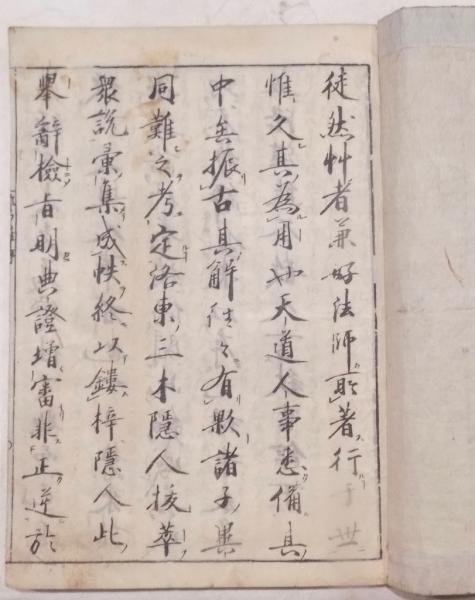 徒然艸者兼好法師所著行于世
惟久其為用也天道人事悉備其
中無振古其解往〻有歟諸子異
同難之考定洛東三木隱人拔萃
衆説彙集成帙終以鏤梓隱人此
舉辭檢旨明典證增審非正逆於